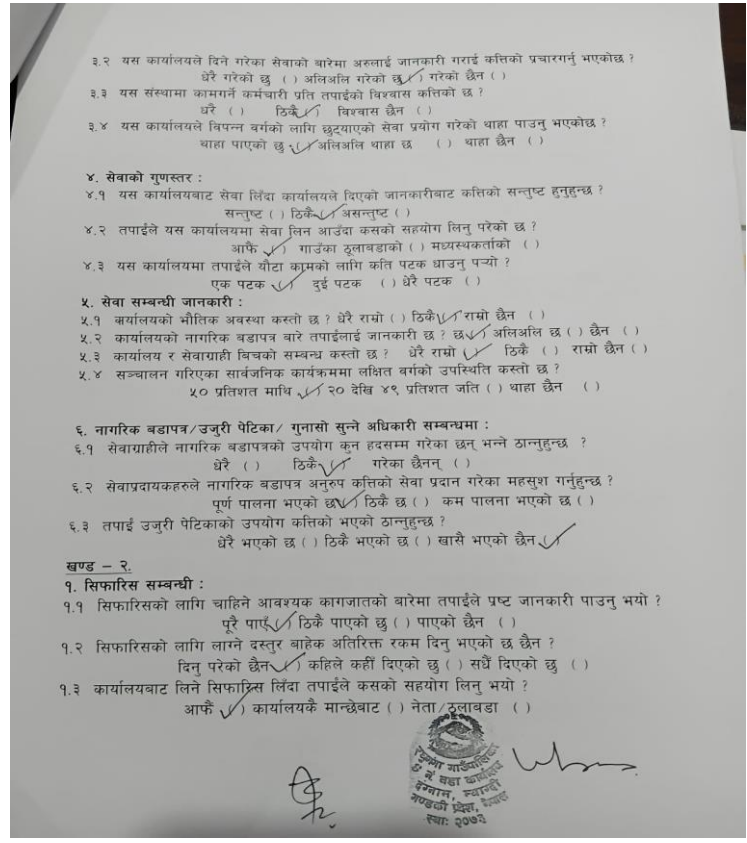 ३.२ यस कार्यालयले दिने गरेका सेवाको बारेमा अरुलाई जानकारी गराई कत्तिको प्रचारगर्नु भएकोछ ?
धेरै गरेको छु ( ) अलिअलि गरेको छु (✓) गरेको छैन ( )
३.३ यस संस्थामा कामगर्ने कर्मचारी प्रति तपाईको विश्वास कत्तिको छ ?
धेरै ( ) ठिकै (✓) विश्वास छैन ( )
३.४ यस कार्यालयले विपन्न वर्गको लागि छुट्याएको सेवा प्रयोग गरेको थाहा पाउनु भएकोछ ?
थाहा पाएको छु (✓) अलिअलि थाहा छ ( ) थाहा छैन ( )
४. सेवाको गुणस्तर :
४.१ यस कार्यालयबाट सेवा लिँदा कार्यालयले दिएको जानकारीबाट कत्तिको सन्तुष्ट हुनुहुन्छ ?
सन्तुष्ट ( ) ठिकै (✓) असन्तुष्ट ( )
४.२ तपाईले यस कार्यालयमा सेवा लिन आउँदा कसको सहयोग लिनु परेको छ ?
आफै (✓) गाउँका ठूलाबडाको ( ) मध्यस्थकर्ताको ( )
४.३ यस कार्यालयमा तपाईले यौटा कामको लागि कति पटक धाउनु पऱ्यो ?
एक पटक (✓) दुई पटक ( ) धेरै पटक ( )
५. सेवा सम्बन्धी जानकारी :
५.१ कार्यालयको भौतिक अवस्था कस्तो छ ? धेरै राम्रो ( ) ठिकै (✓) राम्रो छैन ( )
५.२ कार्यालयको नागरिक बडापत्र बारे तपाईलाई जानकारी छ ? छ (✓) अलिअलि छ ( ) छैन ( )
५.३ कार्यालय र सेवाग्राही बिचको सम्बन्ध कस्तो छ ? धेरै राम्रो (✓) ठिकै ( ) राम्रो छैन ( )
५.४ सञ्चालन गरिएका सार्वजनिक कार्यक्रममा लक्षित वर्गको उपस्थिति कस्तो छ ?
५० प्रतिशत माथि (✓) २० देखि ४९ प्रतिशत जति ( ) थाहा छैन ( )
६. नागरिक बडापत्र/उजुरी पेटिका/ गुनासो सुन्ने अधिकारी सम्बन्धमा :
६.१ सेवाग्राहीले नागरिक बडापत्रको उपयोग कुन हदसम्म गरेका छन् भन्ने ठान्नुहुन्छ ?
धेरै ( ) ठिकै (✓) गरेका छैनन् ( )
६.२ सेवाप्रदायकहरुले नागरिक बडापत्र अनुरुप कत्तिको सेवा प्रदान गरेका महसुश गर्नुहुन्छ ?
पूर्ण पालना भएको छ (✓) ठिकै छ ( ) कम पालना भएको छ ( )
६.३ तपाई उजुरी पेटिकाको उपयोग कत्तिको भएको ठान्नुहुन्छ ?
धेरै भएको छ ( ) ठिकै भएको छ ( ) खासै भएको छैन (✓)
खण्ड – २.
१. सिफारिस सम्बन्धी :
१.१ सिफारिसको लागि चाहिने आवश्यक कागजातको बारेमा तपाईले प्रष्ट जानकारी पाउनु भयो ?
पूरै पाएँ (✓) ठिकै पाएको छु ( ) पाएको छैन ( )
१.२ सिफारिसको लागि लाग्ने दस्तुर बाहेक अतिरिक्त रकम दिनु भएको छ छैन ?
दिनु परेको छैन (✓) कहिले कहीं दिएको छु ( ) सधैं दिएको छु ( )
१.३ कार्यालयबाट लिने सिफारिस लिँदा तपाईले कसको सहयोग लिनु भयो ?
आफै (✓) कार्यालयकै मान्छेबाट ( ) नेता/ठूलाबडा ( )
रघुगंगा गाउँपालिका
छ नं. वडा कार्यालय
दग्नाम, म्याग्दी
गण्डकी प्रदेश, नेपाल
स्था: २०७३